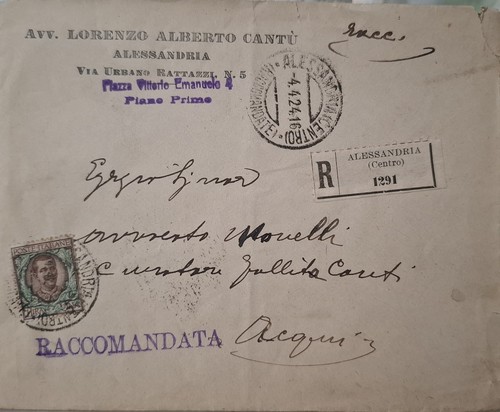 Avv. LORENZO ALBERTO CANTÙ
ALESSANDRIA
VIA URBANO RATTAZZI, N. 5
Piazza Vittorio Emanuele 4
Piano Primo
Racc.
ALESSANDRIA (CENTRO)
-4.4.24.16
(RACCOMANDATE)
R
ALESSANDRIA
(Centro)
1291
Egregio Signor
avvocato Morelli
Curatore fallito Conti
POSTE ITALIANE
RACCOMANDATA
Acqui